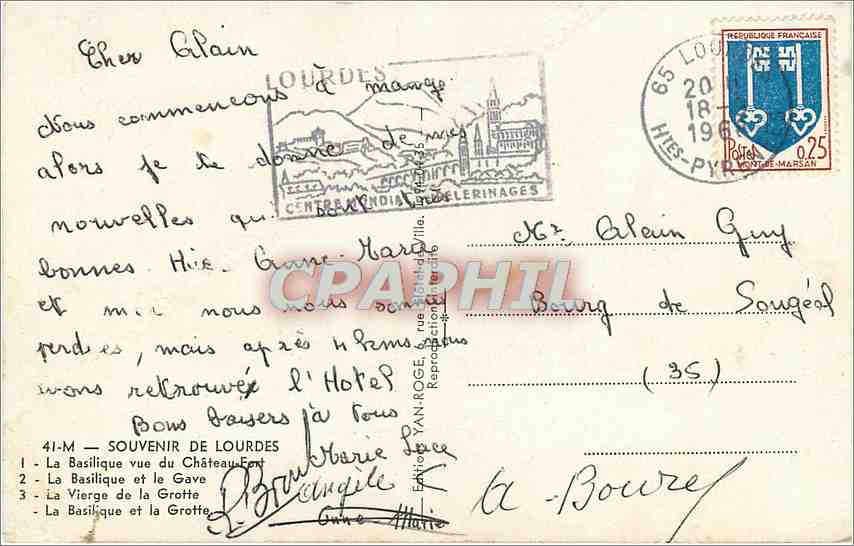 Cher Alain
Nous commencons à mange
alors je te donne de mes
nouvelles qui sont très
bonnes Hie Anne-Marie
et moi nous nous sommes
perdues, mais après 4 kms nous
avons retrouvé l'Hotel
Bons baisers à tous
Marie Luce
angèle
Anne Marie
41-M — SOUVENIR DE LOURDES
1 - La Basilique vue du Château-Fort
2 - La Basilique et le Gave
3 - La Vierge de la Grotte
- La Basilique et la Grotte
LOURDES
CENTRE MONDIAL PELERINAGES
Editions YAN-ROGE, 6, rue Hôtel-de-Ville.
Reproduction interdite
65 LOU
20
18-
196
HTES-PYR
REPUBLIQUE FRANÇAISE
Postes 0,25
MONT-DE-MARSAN
Mr Alain Guy
Bourg de Sougéal
(35)
CPAPHIL